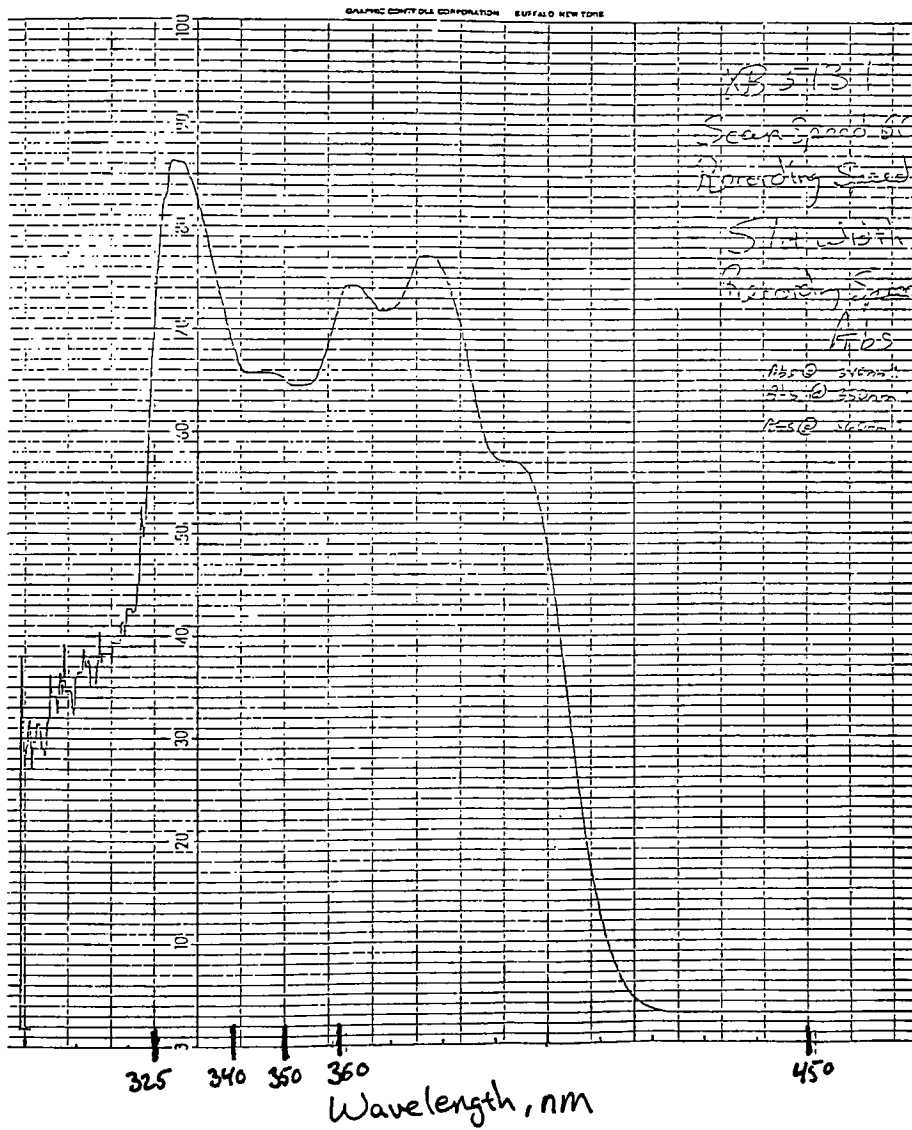 GRAPHIC CONTROLS CORPORATION BUFFALO NEW YORK
100
90
80
70
60
50
40
30
20
10
XB-5131
Scan Speed
Recording Speed
Slit width
Recording
Abs
Abs @
Abs @ 350nm
Abs @
325 340 350 360 450
Wavelength, nm